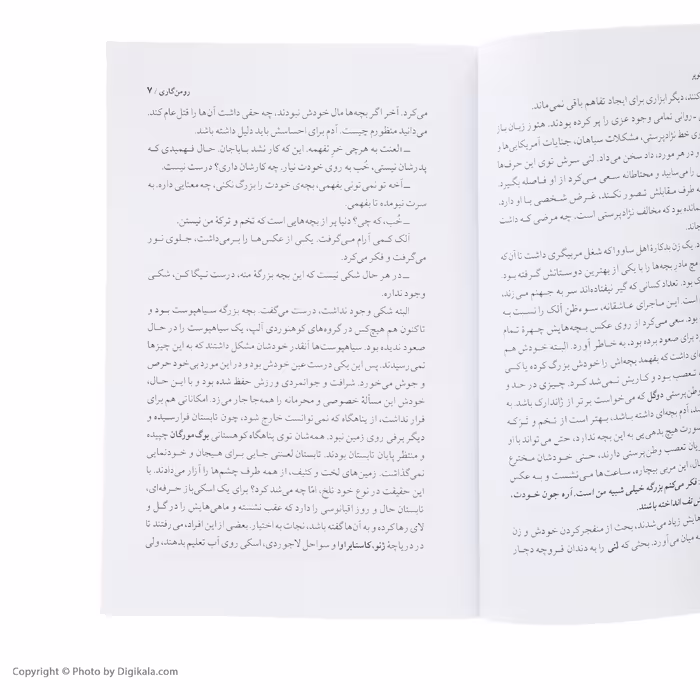 رومن‌گاری / ۷
می‌کرد. آخر اگر بچه‌ها مال خودش نبودند، چه حقی داشت آن‌ها را قتل‌عام کند.
می‌دانید منظورم چیست. آدم برای احساسش باید دلیل داشته باشد.
ــ «لعنت به هرچی خرِ نفهمه. این که کار نشد باباجان. حال فهمیدی که
پدرشان نیستی، خُب به روی خودت نیار. چه کارشان داری؟ درست نیست.
ــ آخه تو نمی‌تونی بفهمی، بچه‌ی خودت را بزرگ نکنی، چه معنایی داره. به
سرت نیومده تا بفهمی.
ــ خُب، که چی؟ دنیا پر از بچه‌هایی است که تخم و ترکهٔ من نیستن.
آلک کمی آرام می‌گرفت. یکی از عکس‌ها را برمی‌داشت، جلوی نور
می‌گرفت و فکر می‌کرد.
ــ در هر حال شکی نیست که این بچه بزرگهٔ منه، درست نیگاکس، شکی
وجود نداره.
البته شکی وجود نداشت، درست می‌گفت. بچه بزرگه سیاهپوست بود و
تاکنون هم هیچ‌کس در گروه‌های کوهنوردی آلپ، یک سیاهپوست را در حال
صعود ندیده بود. سیاهپوست‌ها آنقدر خودشان مشکل داشتند که به این چیزها
نمی‌رسیدند. پس این یکی درست عین خودش بود و در این مورد بی‌خود حرص
و جوش می‌خورد. شرافت و جوانمردی ورزش حفظ شده بود و با ایـن حـال،
خودش این مسألهٔ خصوصی و محرمانه را همه‌جا جار می‌زد. امکاناتی هم برای
فرار نداشت، از پناهگاه که نمی‌توانست خارج شود، چون تابستان فرارسیده و
دیگر برفی روی زمین نبود. همه‌شان توی پناهگاه کوهستانی بوگ‌مورگان چپیده
و منتظر پایان تابستان بودند. تابستان لعنتی جایی برای هیجان و خودنمایی
نمی‌گذاشت. زمین‌های لخت و کثیف، از همه طرف چشم‌ها را آزار می‌دادند. با
این حقیقت در نوع خود تلخ، امّا چه می‌شد کرد؟ برای یک اسکی‌باز حرفه‌ای،
تابستان حال و روز اقیانوسی را دارد که عقب نشسته و ماهی‌هایش را در گـل و
لای رها کرده و به آن‌ها گفته باشد، نجات به اختیار. بعضی از این افراد، می‌رفتند تا
در دریاچهٔ ژنو، کاستایراوا و سواحل لاجوردی، اسکی روی آب تعلیم بدهند، ولی
کنند، دیگر ابزاری برای ایجاد تفاهم باقی نمی‌ماند.
ـ روانی تمامی وجود عزی را پر کرده بودند. هنوز زبان باز
خط نژادپرستی، مشکلات سیاهان، جنایات آمریکایی‌ها و
و در هر مورد، داد سخن می‌داد. لنی سرش توی این حرف‌ها
را می‌سایید و محتاطانه سعی می‌کرد از او فاصله بگیرد.
طرف مقابلش تصور نکنند، غرض شخصی با او دارد.
مانده بود که مخالف نژادپرستی است. چه مرضی که داشت
یک زن بدکارهٔ اهل ساووا که شغل مربیگری داشت تا آن‌که
مچ مادر بچه‌ها را با یکی از بهترین دوستانش گرفته بود.
بود. تعداد کسانی که گیر نیفتاده‌اند سر به جهنم می‌زند.
است. این ماجرای عاشقانه، سوءظن آلک را نسبت به
بود. سعی می‌کرد از روی عکس بچه‌هایش چهرهٔ تمام
برای صعود برده بود، به خاطر آورد. البته خودش هم
داشت که بفهمد بچه‌اش را خودش بزرگ کرده یا کی
تعصب بود و کاریش نمی‌شد کرد. چیزی در حد و
وطن‌پرستی دوگل که می‌خواست برتر از ژاندارک باشد. به
آدم بچه‌ای داشته باشد، بهتر است از تخم و ترکه
صورت هیچ بدهی‌یی به این بچه ندارد، حتی می‌تواند با او
تعصب وطن‌پرستی دارند، حتی خودشان مخترع
این مربی بیچاره، ساعت‌ها می‌نشست و به عکس
فکر می‌کنم بزرگه خیلی شبیه من است. آره جون خودت،
تف انداخته باشند.
زیاد می‌شدند، بحث از منفجر کردن خودش و زن
به میان می‌آورد. بحثی که لنی را به دندان قروچه دچار
Copyright © Photo by Digikala.com